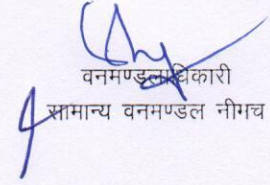 वनमण्डलाधिकारी
सामान्य वनमण्डल नीमच